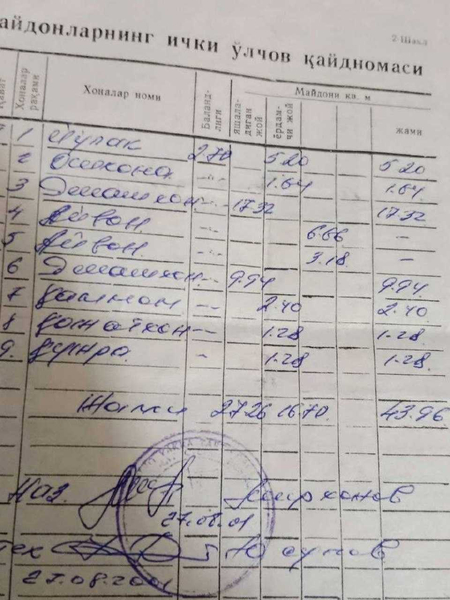 2 Шакл
айдонларнинг ички ўлчов қайдномаси
Қават
Хоналар рақами
Хоналар номи
Баландлиги
Майдони кв. м
яшаладиган жой
ёрдамчи жой
жами
1 Йулак 2.70 5.20 5.20
2 Ошхона -"- 1.64 1.64
3 Яшашхон -"- 17.32 17.32
4 Айвон -"- 6.66 –
5 Айвон -"- 3.18 –
6 Яшашхон -"- 9.94 9.94
7 -"- 2.40 2.40
8 -"- 1.28 1.28
9. - 1.28 1.28
Жами 27.26 16.70 43.96
Наз.
27.08.01
тех Юсупов
27.08.2001